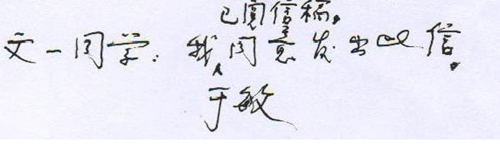 已阅信稿。
文一同学：我同意发出此信。
于敏